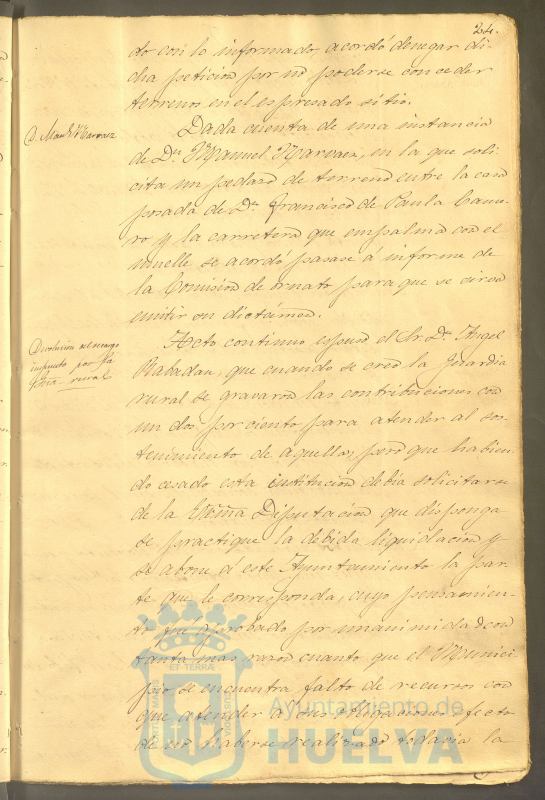 24.
do con lo informado, acordó denegar di-
cha peticion por no poderse conceder
terrenos en el espresado sitio.
D. Manl. Narvaez
Dada cuenta de una instancia
de Dn. Manuel Narvaez, en la que soli-
cita un pedazo de terreno entre la casa
posada de Dn. Francisco de Paula
y la carretera que empalma con el
muelle se acordó pasase á informe de
la Comision de ornato para que se sirva
emitir su dictámen.
Devolucion del recargo
impuesto por la
rural
Acto continuo espuso el Sr. Dn. Angel
Rabadan, que cuando se creó la guardia
rural se gravaron las contribuciones con
un dos por ciento para atender al sos-
tenimiento de aquella; pero que habien-
do cesado esta institucion debia solicitarse
de la Excma Diputacion que disponga
se practique la debida liquidacion y
se abone á este Ayuntamiento la par-
te que le corresponda, cuyo pensamien-
to fue aprobado por unanimidad con
tanta mas razon cuanto que el Munici
pio se encuentra falto de recursos con
que atender á sus obligaciones efecto
de no haberse realizado todavia la
PORTUS MARIS
ET TERRÆ
CUSTODIA
Ayuntamiento de
HUELVA